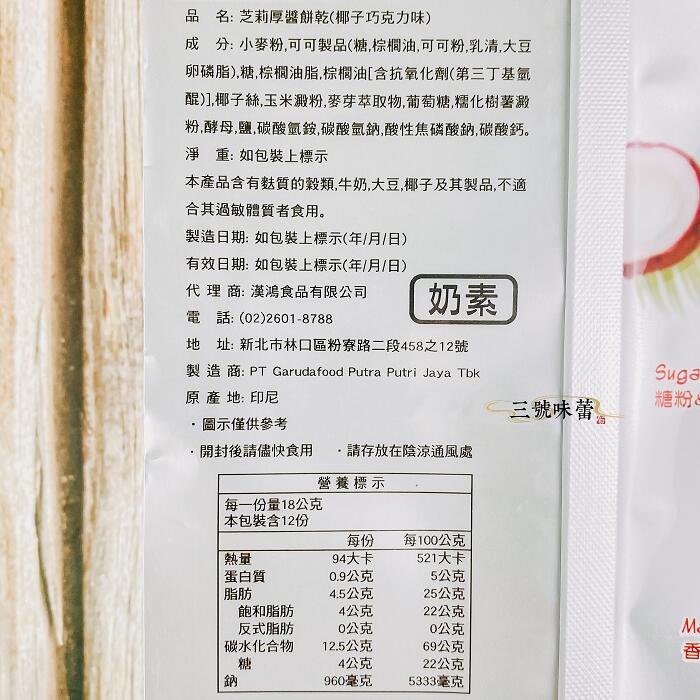 品　名: 芝莉厚醬餅乾(椰子巧克力味)
成　分: 小麥粉,可可製品(糖,棕櫚油,可可粉,乳清,大豆
卵磷脂),糖,棕櫚油脂,棕櫚油[含抗氧化劑(第三丁基氫
醌)],椰子絲,玉米澱粉,麥芽萃取物,葡萄糖,糯化樹薯澱
粉,酵母,鹽,碳酸氫銨,碳酸氫鈉,酸性焦磷酸鈉,碳酸鈣。
淨　重: 如包裝上標示
本產品含有麩質的穀類,牛奶,大豆,椰子及其製品,不適
合其過敏體質者食用。
製造日期: 如包裝上標示(年/月/日)
有效日期: 如包裝上標示(年/月/日)
代 理 商: 漢鴻食品有限公司
奶素
電　話: (02)2601-8788
地　址: 新北市林口區粉寮路二段458之12號
製 造 商: PT Garudafood Putra Putri Jaya Tbk
原 產 地: 印尼
三號味蕾
・圖示僅供參考
・開封後請儘快食用　・請存放在陰涼通風處
營養標示
每一份量18公克
本包裝含12份
每份　每100公克
熱量　94大卡　521大卡
蛋白質　0.9公克　5公克
脂肪　4.5公克　25公克
飽和脂肪　4公克　22公克
反式脂肪　0公克　0公克
碳水化合物　12.5公克　69公克
糖　4公克　22公克
鈉　960毫克　5333毫克
Suga
糖粉&
Ma
香